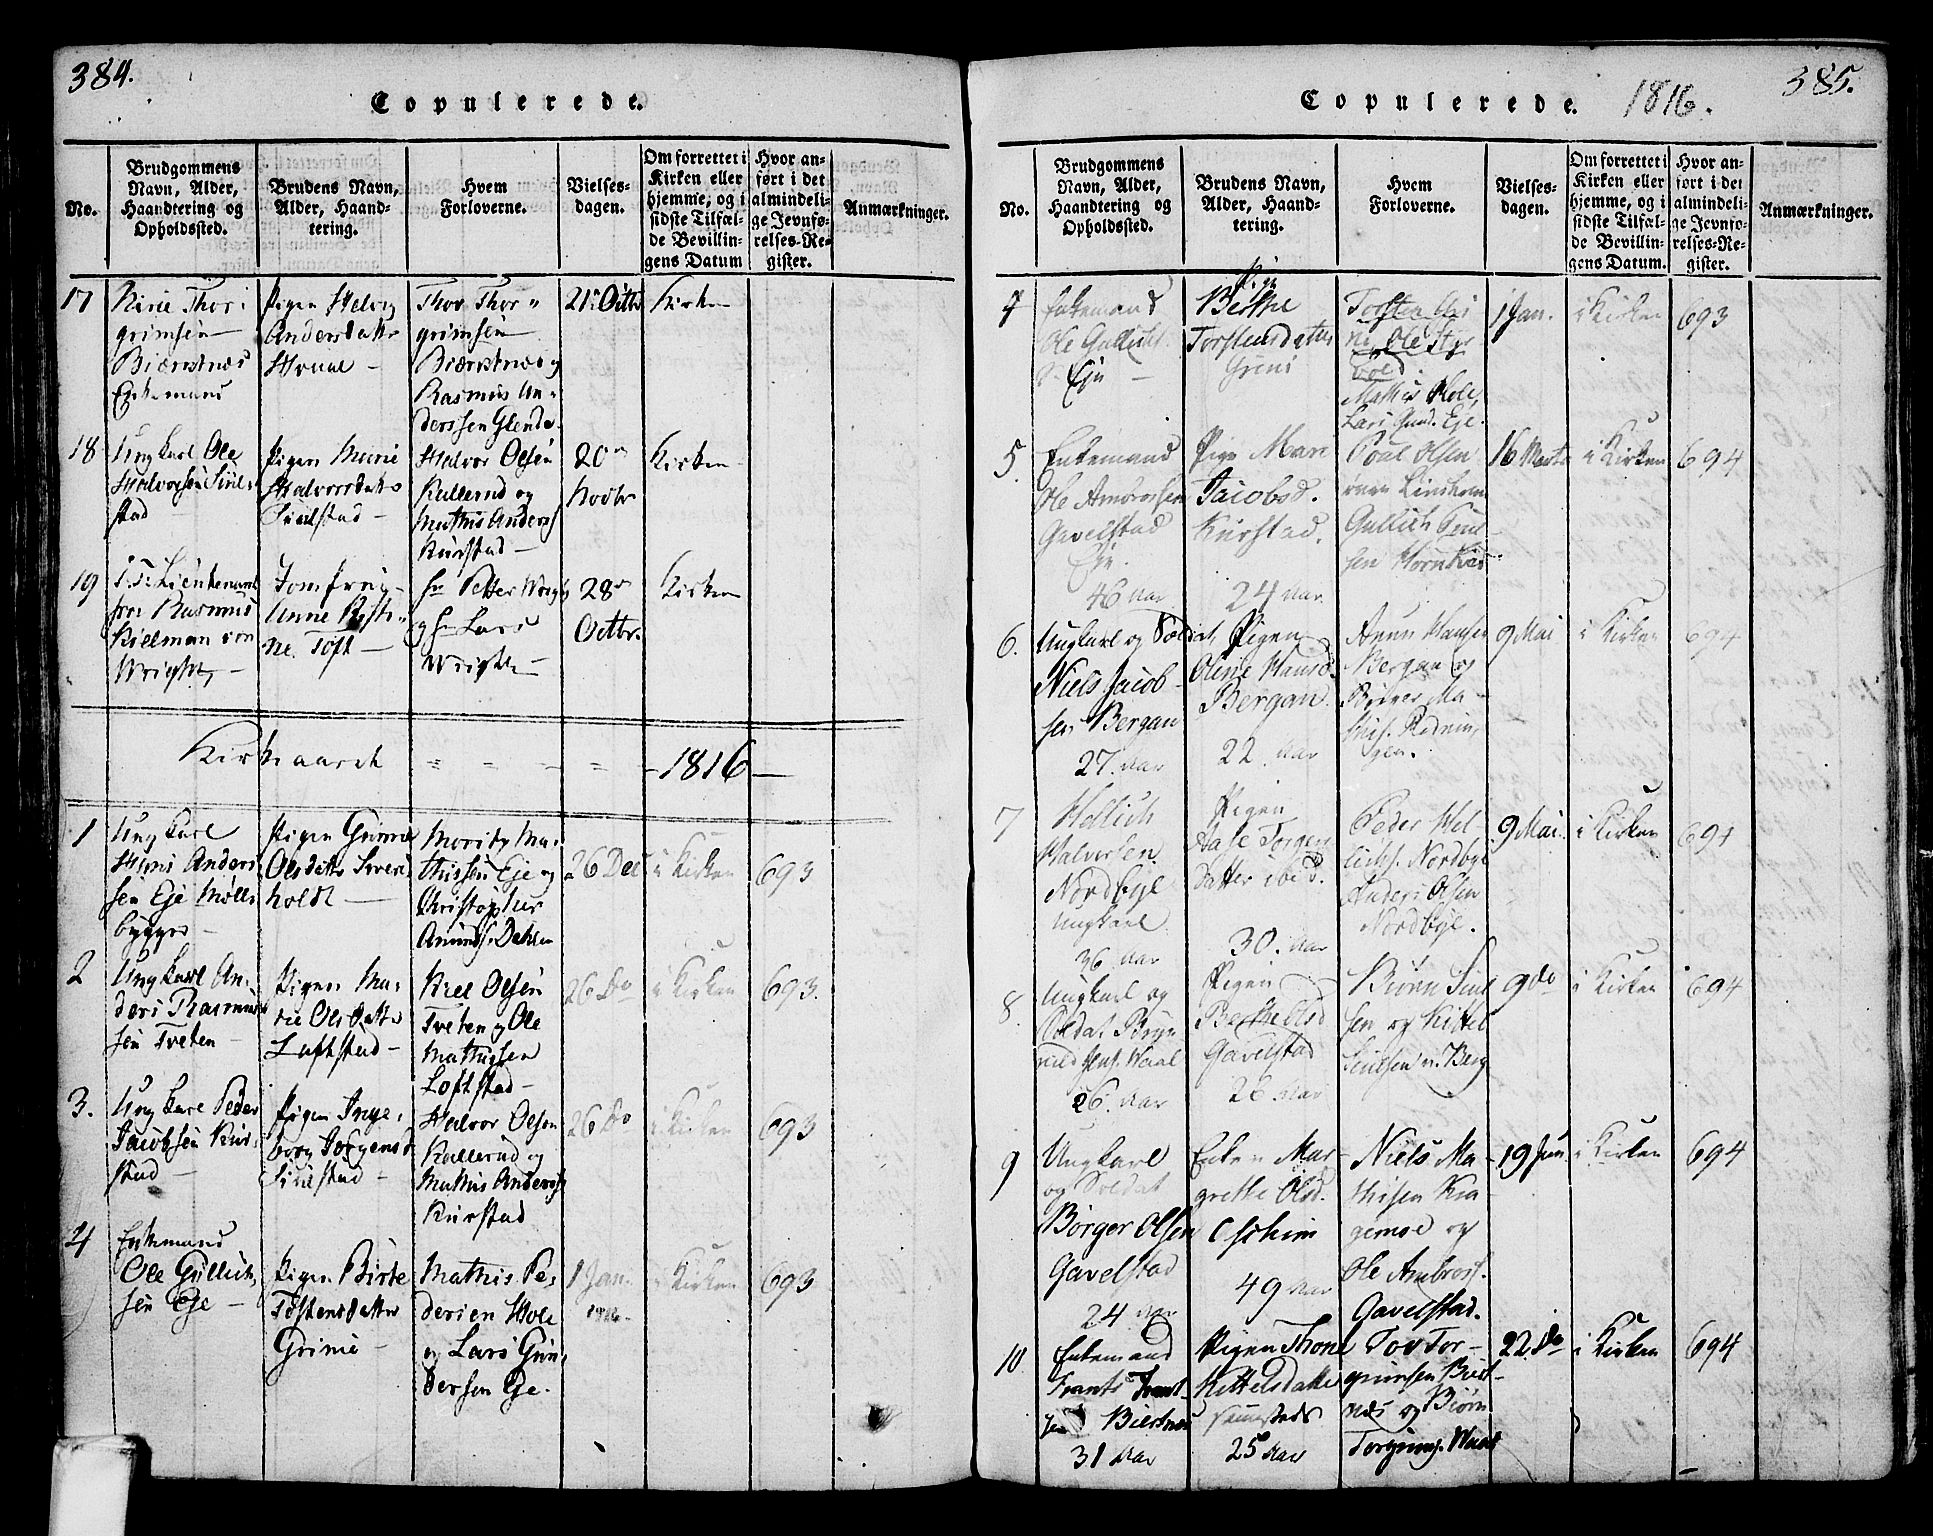 384.
Copulerede.
No.
Brudgommens
Navn, Alder,
Haandtering og
Opholdssted.
Brudens Navn,
Alder, Haand-
tering.
Hvem
Forloverne.
Vielses-
dagen.
Om forrettet i
Kirken eller
hjemme, og i
sidste Tilfæl-
de Bevillin-
gens Datum
Hvor an-
ført i det
almindeli-
ge Jevnfø-
relses-Re-
gister.
Anmærkninger.
17
Thor
grimsen
Biærntnæs
Enkemand
Pigen Helvig
Andersdatter
Thor Thor
grimsen
Biærntnæs og
Rasmus An
derssen Glende
21 Octbr
Kirken
18
Ungkarl Ole
Halvorsen
stad
Pigen Marie
Halvorsdatter
Halvor Olsen
Kallerud og
Mathis Anderss
Kurstad
20
Novbr
Kirken
19
S. T. Lieutenant
Herr Rasmus
Kielman von
Wright
Jomfrue
Anne Kisti
ne Toft
Hr Petter Wright
og Hr Lars
Wright
28
Octbr.
Kirken
Kirkaaret = = = = 1816
1
Ungkarl
Hans Anders
sen Eje Mølle
bygger
Pigen
Olsdatter
holdt
Moritz Ma
thissen Eje og
Christopher
Amunds. Dahlen
26 Dec
i Kirken
693
2
Ungkarl An
ders Rasmus
sen Tveten
Pigen Ma
rie Olsdatter
Loftstad
Kiel Olsen
Tveten og Ole
Mathissen
Loftstad
26 Do
i Kirken
693.
3.
Ungkarl Peder
Jacobsen Kur
stad
Pigen Inge
borg Jørgensd
Halvor Olsen
Kallerud og
Mathis Anderss
Kurstad
26 Do
i Kirken
693
4
Enkemand
Ole Gullich
sen Eje
Pigen Birte
Tostensdatter
Grinie
Mathis Pe
dersen Hole
og Lars Gun
dersen Eje.
1 Jan.
1816.
i Kirken
693
385.
Copulerede. 1816.
No.
Brudgommens
Navn, Alder,
Haandtering og
Opholdssted.
Brudens Navn,
Alder, Haand-
tering.
Hvem
Forloverne.
Vielses-
dagen.
Om forrettet i
Kirken eller
hjemme, og i
sidste Tilfæl-
de Bevillin-
gens Datum.
Hvor an-
ført i det
almindeli-
ge Jevnfø-
relses-Re-
gister.
Anmærkninger.
4
Enkemand
Ole Gullichs
Eje
Pige
Berthe
Torstensdatter
Grini
Torsten Gri
ni, Ole
Mathis Hole,
Lars Gund. Eje.
1 Jan.
i Kirken
693
5.
Enkemand
Ole Ambrossen
Gavelstad
Eje.
46 Aar
Pige Mari
Jacobsd.
Kurstad.
24 Aar.
Poul Olsen
Gullich Poul
sen
16 Marts
i Kirken
694
6.
Ungkarl og Soldat
Niels Jacob
sen Bergan
27. Aar
Pigen
Oline Hansd.
Bergan.
22. Aar
Hansen
Bergan og
9 Mai
i Kirken
694
7
Hellich
Halvorsen
Nordbye
Ungkarl
36 Aar
Pigen
Aase Torgers
datter ibid.
30. Aar
Peder Hel
lichs. Nordbye
Anders Olsen
Nordbye.
9 Mai.
i Kirken
694
8.
Ungkarl og
Soldat Bryn
Jens. Waal
26. Aar
Pigen
Berthe Olsd
Gavelstad
26 Aar
Biørn
sen og Kittel
9 do
i Kirken
694
9
Ungkarl
og Soldat
Børger Olsen
Gavelstad
24 Aar
Enken Mar
grethe Olsd.
Oshiim
49 Aar
Niels Ma
thisen Kra
gemoe og
Ole Ambross.
Gavelstad.
19 Jun.
i Kirken
694
10
Enkemand
Frants Frant
sen Biertnæs
31 Aar
Pigen Thone
Kittelsdatter
25 Aar
Tov Tor
grimsen Biert
næs og Biørn
Torgrims. Waal
22. Do
i Kirken
694